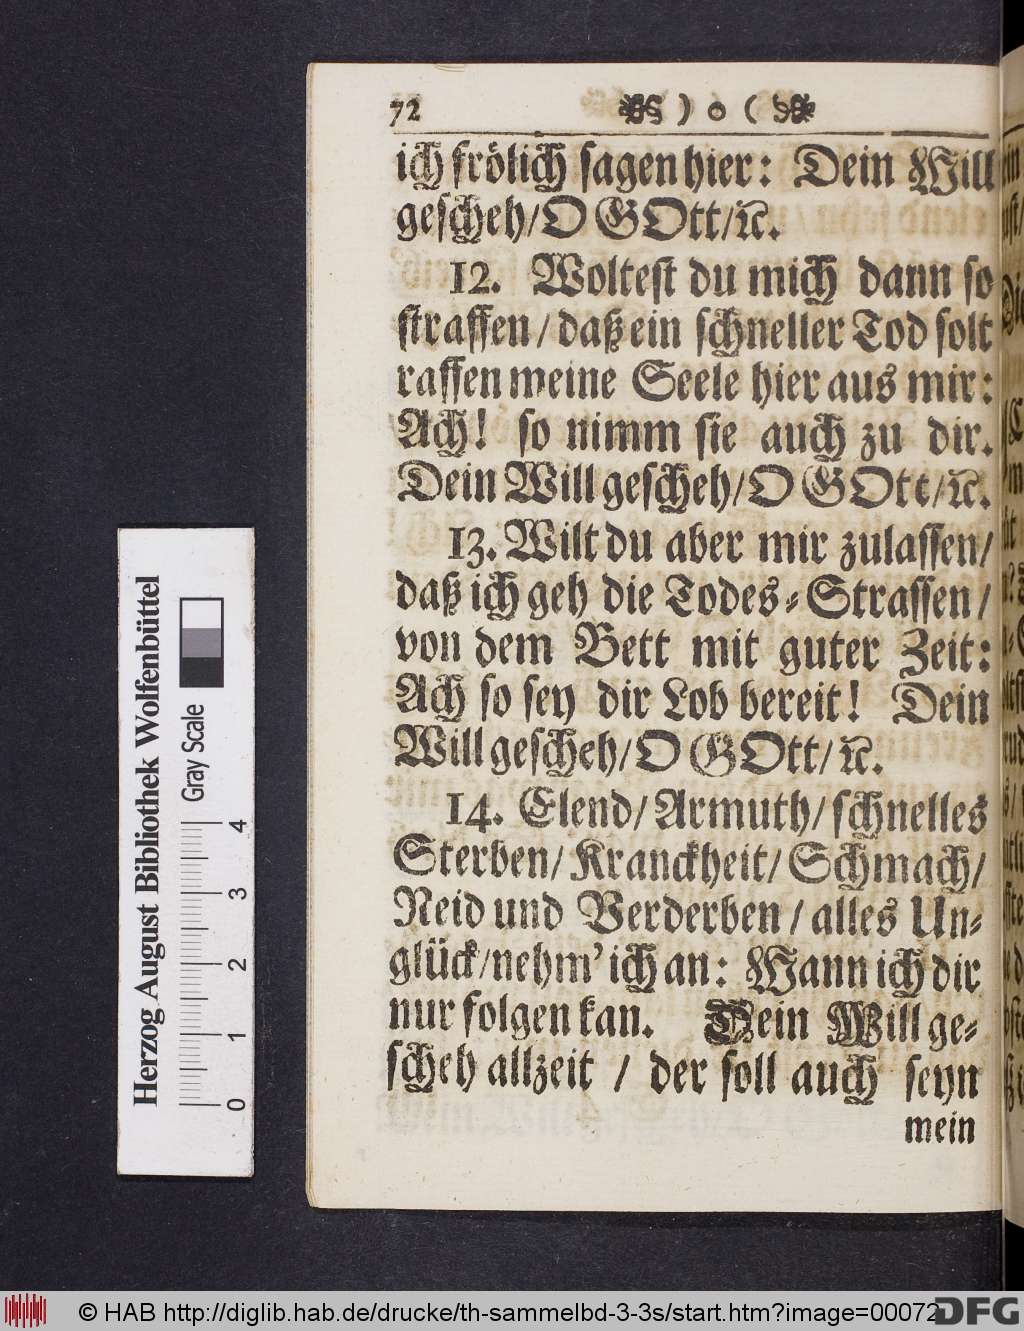 72 ) o (
ich frölich sagen hier: Dein Will
gescheh/O GOtt/ꝛc.
12. Woltest du mich dann so
straffen/ daß ein schneller Tod solt
raffen meine Seele hier aus mir:
Ach! so nimm sie auch zu dir.
Dein Will gescheh/O GOtt/ꝛc.
13. Wilt du aber mir zulassen/
daß ich geh die Todes-Strassen/
von dem Bett mit guter Zeit:
Ach so sey dir Lob bereit! Dein
Will gescheh/O GOtt/ꝛc.
14. Elend/ Armuth/ schnelles
Sterben/ Kranckheit/ Schmach/
Neid und Verderben/ alles Un-
glück/nehm' ich an: Wann ich dir
nur folgen kan. Dein Will ge-
scheh allzeit / der soll auch seyn
mein
Herzog August Bibliothek Wolfenbüttel
Gray Scale
0 1 2 3 4
© HAB http://diglib.hab.de/drucke/th-sammelbd-3-3s/start.htm?image=00072
DFG